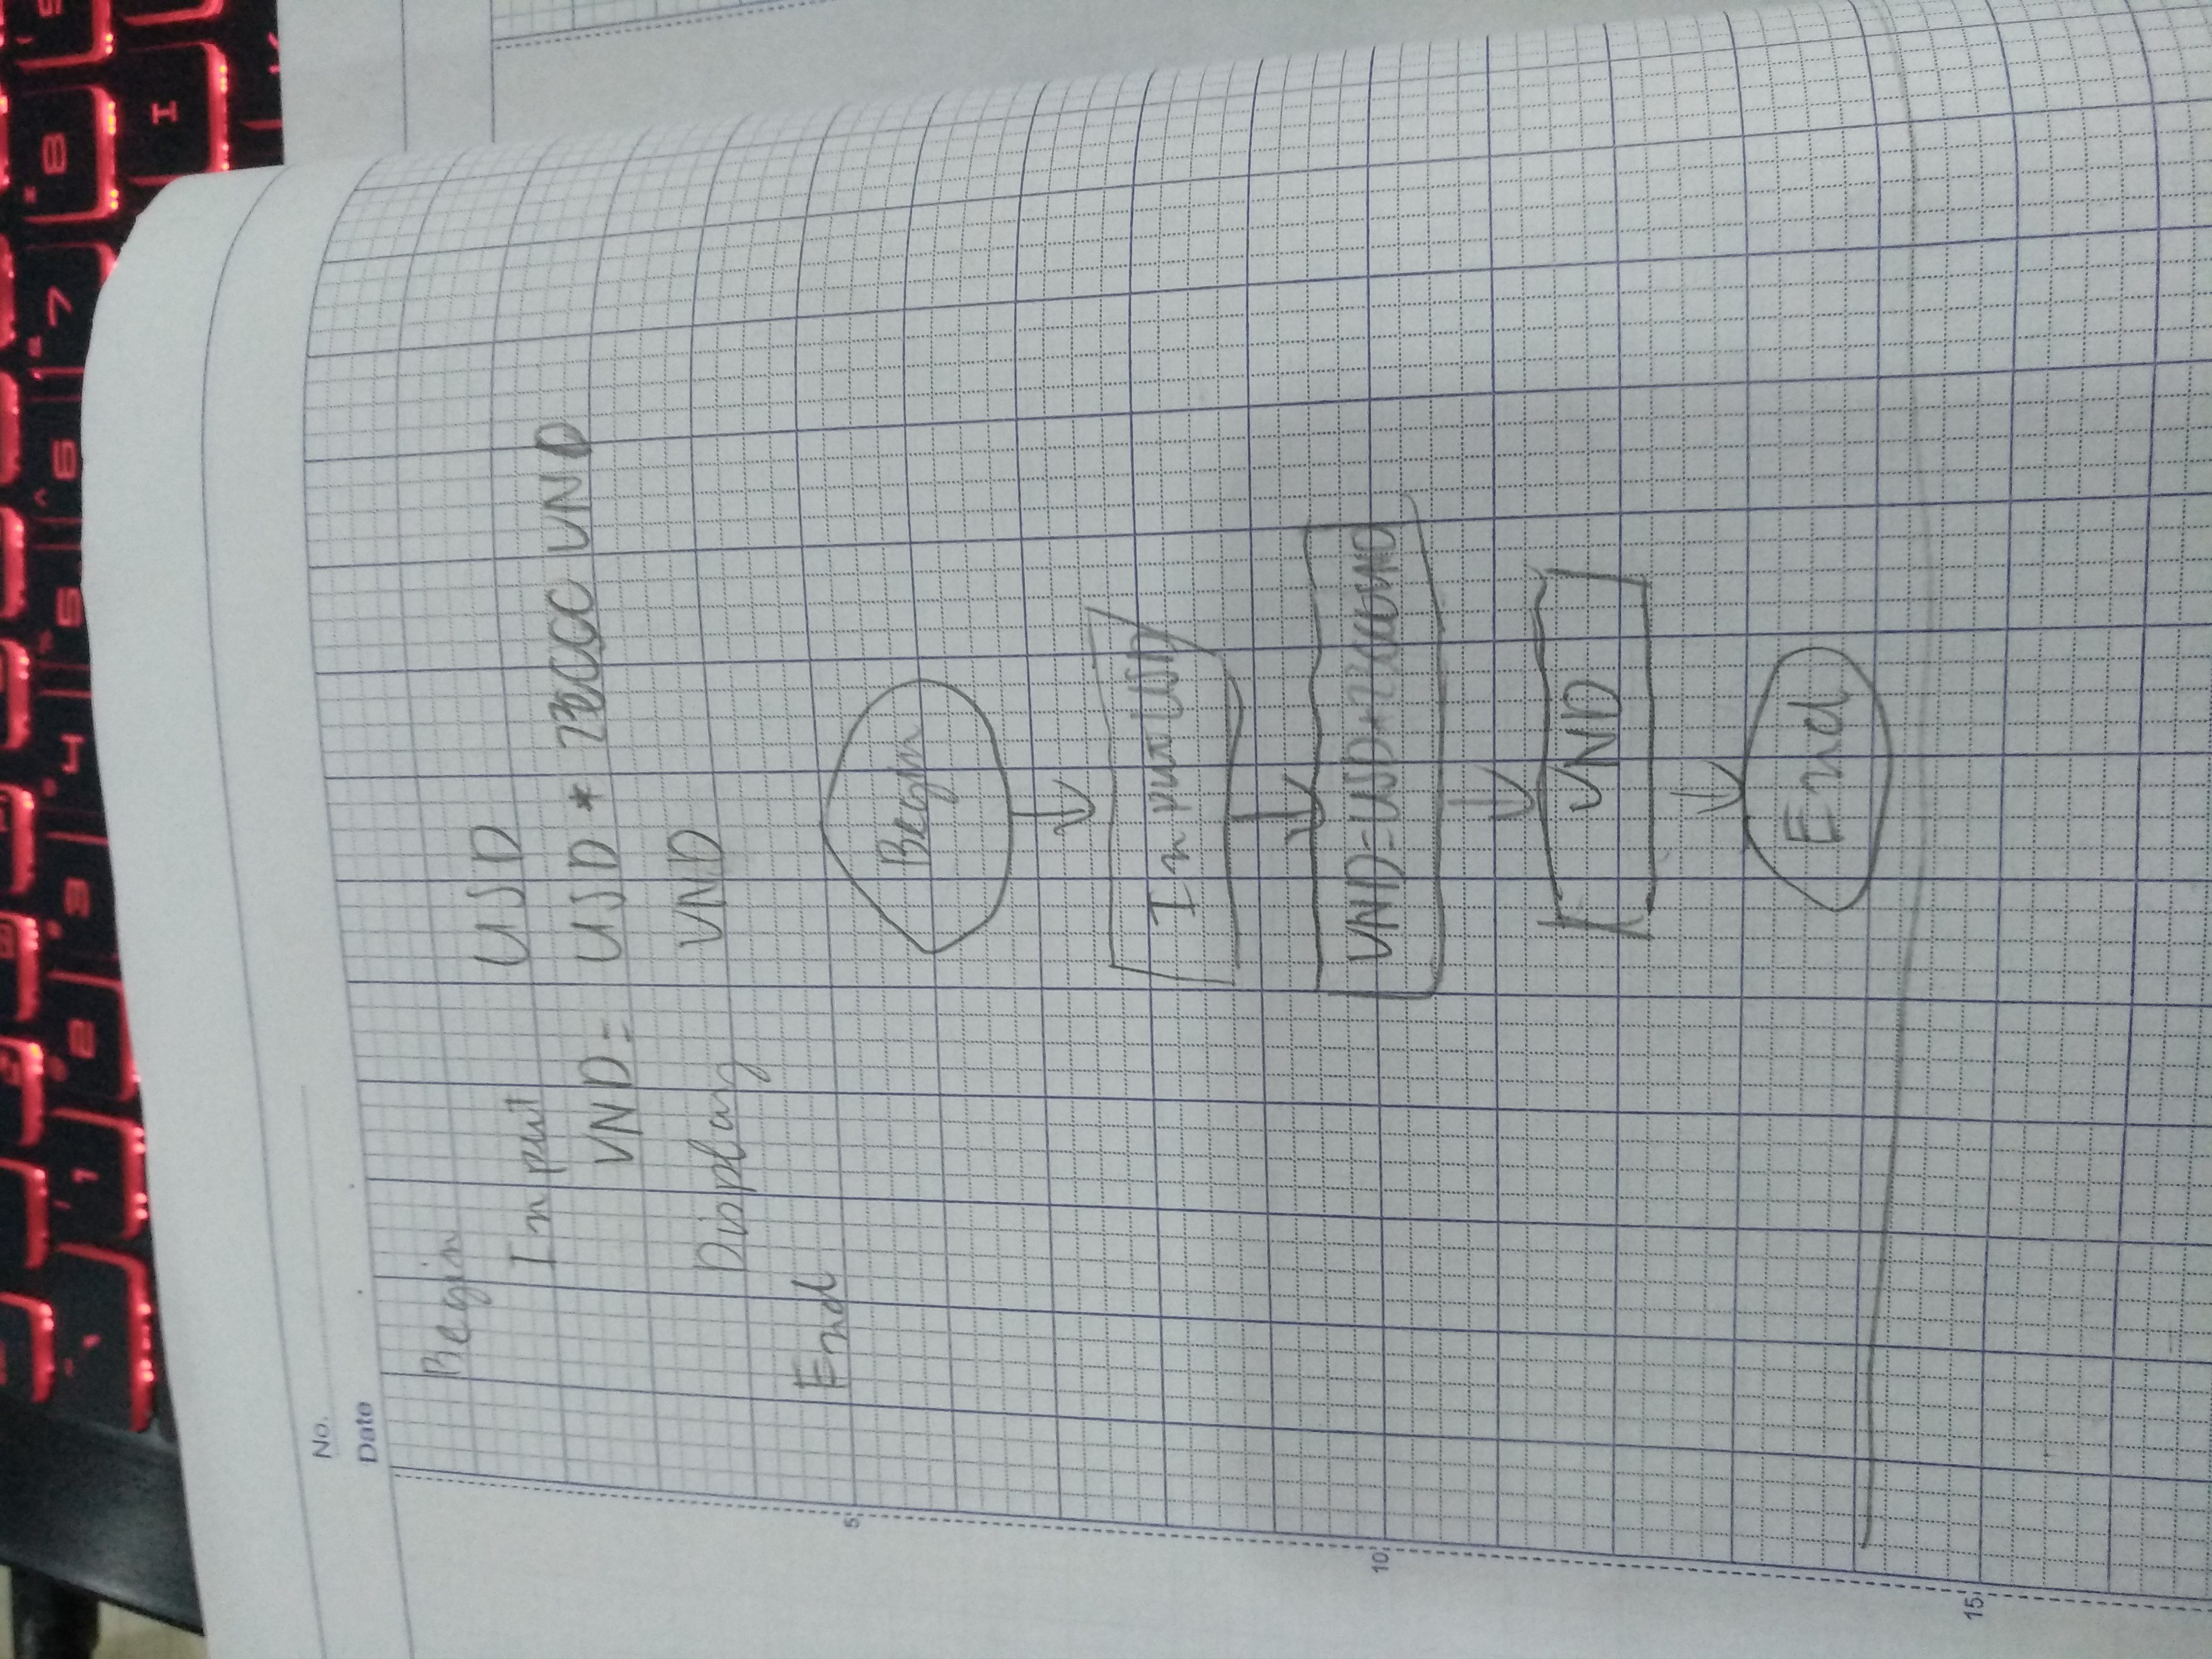 No.
Date
Begin
Input USD
VND = USD * 23000 VND
Display VND
End
Begin
Input USD
VND = USD * 23000 VND
VND
End
5
10
15
1
2
3
4
5
6
7
8
I